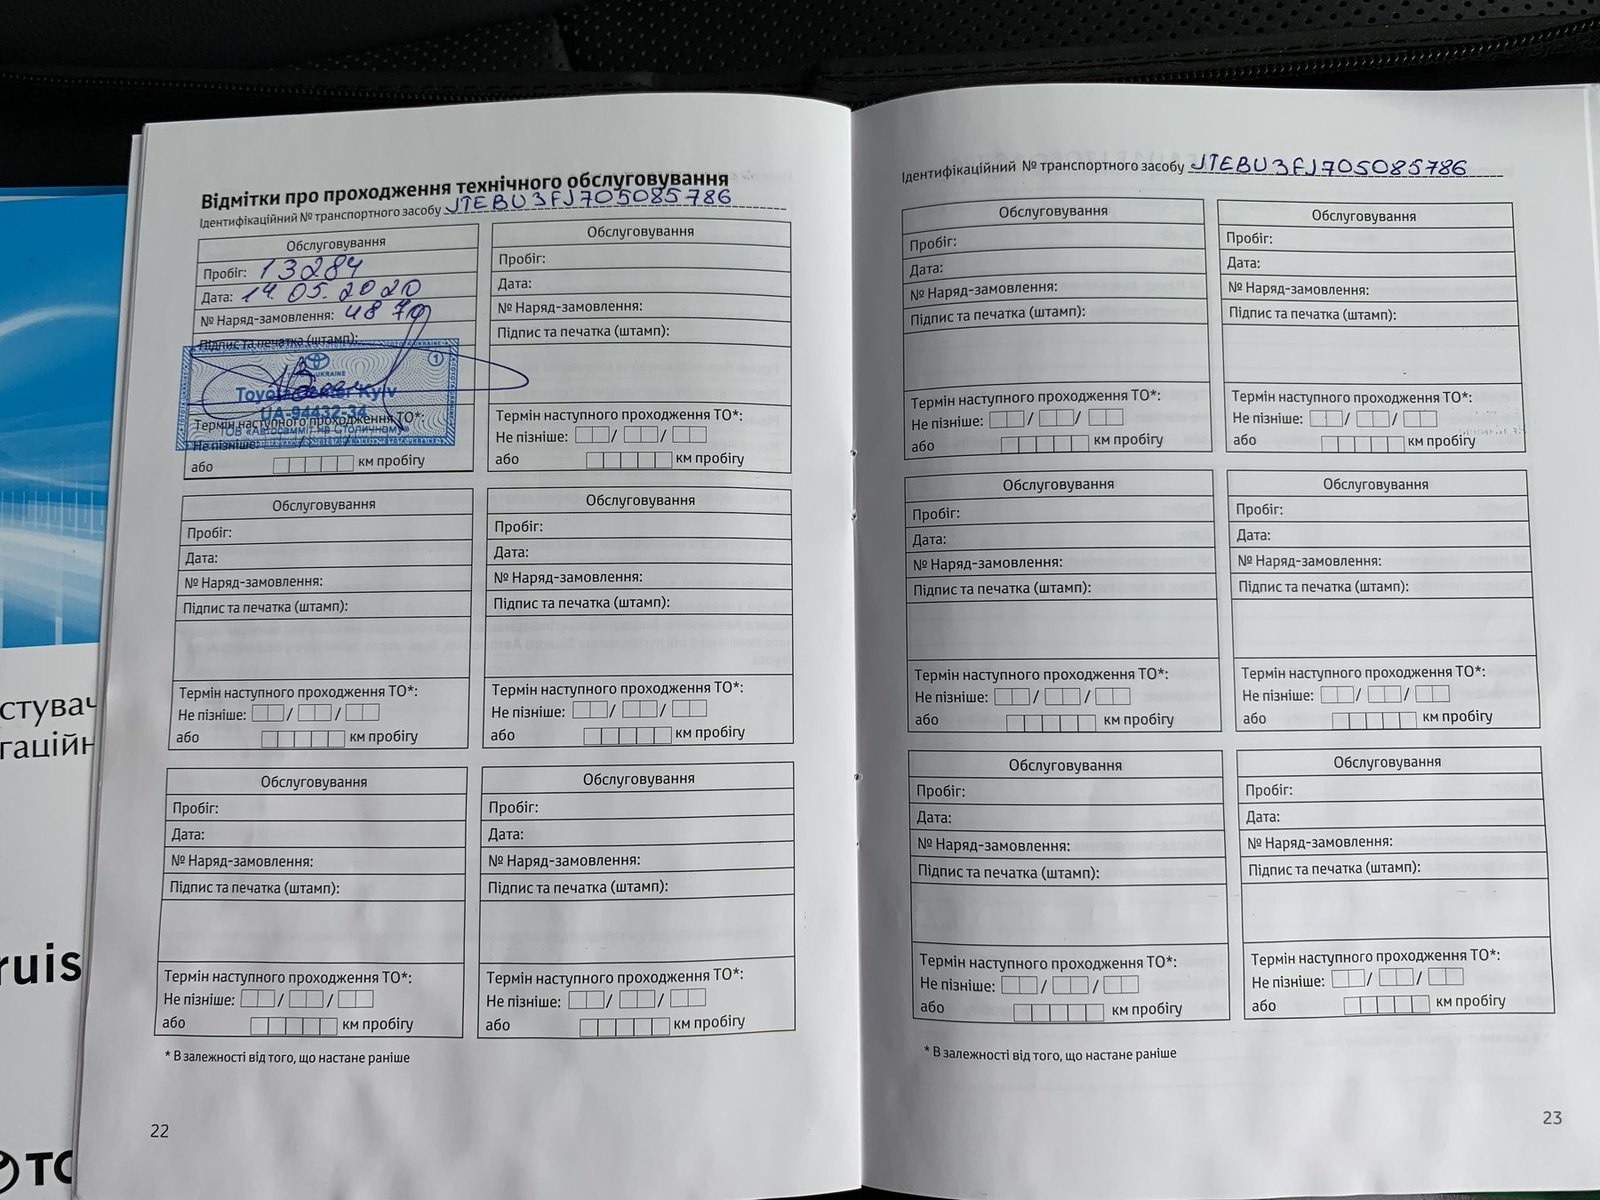 Відмітки про проходження технічного обслуговування
Ідентифікаційний № транспортного засобу JTEBU3FJ705085786
Обслуговування
Пробіг: 13284
Дата: 14.05.2020
№ Наряд-замовлення:
Підпис та печатка (штамп):
TOYOTA UKRAINE
1
Toyota Center Kyiv
UA-94432-34
ТОВ «Автосамміт на Столичному»
Термін наступного проходження ТО*:
Не пізніше:
або км пробігу
Обслуговування
Пробіг:
Дата:
№ Наряд-замовлення:
Підпис та печатка (штамп):
Термін наступного проходження ТО*:
Не пізніше: / /
або км пробігу
Обслуговування
Пробіг:
Дата:
№ Наряд-замовлення:
Підпис та печатка (штамп):
Термін наступного проходження ТО*:
Не пізніше: / /
або км пробігу
Обслуговування
Пробіг:
Дата:
№ Наряд-замовлення:
Підпис та печатка (штамп):
Термін наступного проходження ТО*:
Не пізніше: / /
або км пробігу
Обслуговування
Пробіг:
Дата:
№ Наряд-замовлення:
Підпис та печатка (штамп):
Термін наступного проходження ТО*:
Не пізніше: / /
або км пробігу
Обслуговування
Пробіг:
Дата:
№ Наряд-замовлення:
Підпис та печатка (штамп):
Термін наступного проходження ТО*:
Не пізніше: / /
або км пробігу
* В залежності від того, що настане раніше
22
Ідентифікаційний № транспортного засобу JTEBU3FJ705085786
Обслуговування
Пробіг:
Дата:
№ Наряд-замовлення:
Підпис та печатка (штамп):
Термін наступного проходження ТО*:
Не пізніше: / /
або км пробігу
Обслуговування
Пробіг:
Дата:
№ Наряд-замовлення:
Підпис та печатка (штамп):
Термін наступного проходження ТО*:
Не пізніше: / /
або км пробігу
Обслуговування
Пробіг:
Дата:
№ Наряд-замовлення:
Підпис та печатка (штамп):
Термін наступного проходження ТО*:
Не пізніше: / /
або км пробігу
Обслуговування
Пробіг:
Дата:
№ Наряд-замовлення:
Підпис та печатка (штамп):
Термін наступного проходження ТО*:
Не пізніше: / /
або км пробігу
Обслуговування
Пробіг:
Дата:
№ Наряд-замовлення:
Підпис та печатка (штамп):
Термін наступного проходження ТО*:
Не пізніше: / /
або км пробігу
Обслуговування
Пробіг:
Дата:
№ Наряд-замовлення:
Підпис та печатка (штамп):
Термін наступного проходження ТО*:
Не пізніше: / /
або км пробігу
* В залежності від того, що настане раніше
23
стувач
гаційн
ruis
TO